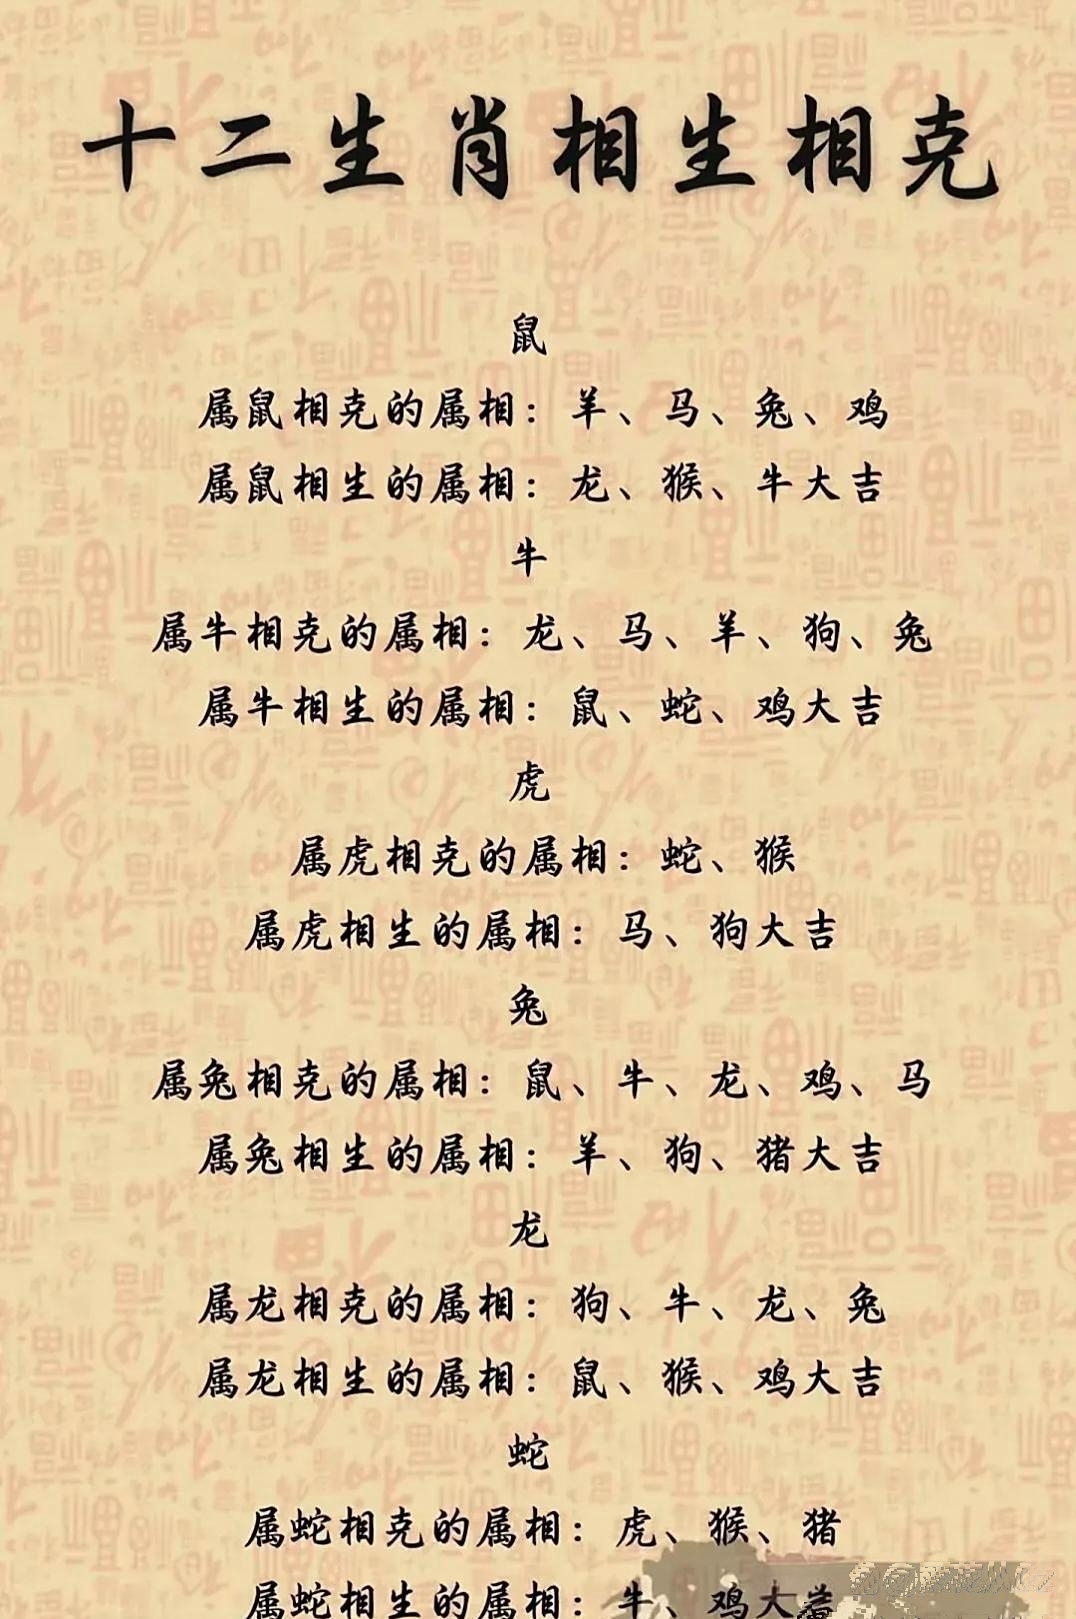 十二生肖相生相克
鼠
属鼠相克的属相：羊、马、兔、鸡
属鼠相生的属相：龙、猴、牛大吉
牛
属牛相克的属相：龙、马、羊、狗、兔
属牛相生的属相：鼠、蛇、鸡大吉
虎
属虎相克的属相：蛇、猴
属虎相生的属相：马、狗大吉
兔
属兔相克的属相：鼠、牛、龙、鸡、马
属兔相生的属相：羊、狗、猪大吉
龙
属龙相克的属相：狗、牛、龙、兔
属龙相生的属相：鼠、猴、鸡大吉
蛇
属蛇相克的属相：虎、猴、猪
属蛇相生的属相：牛、鸡大